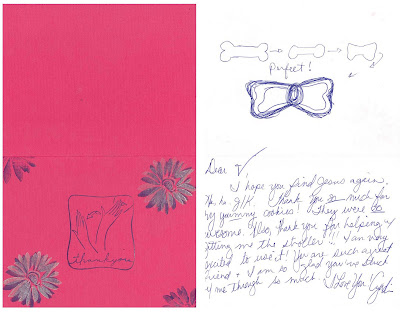 thank you
Perfect!
Dear V
I hope you find Jesus again.
Ha, ha, J/K. Thank you so much for
my yummy cookies! They were so
awesome. Also, thank you for helping
getting me the stroller!! I am very
excited to use it! You are such a great
friend + I am so glad you've stuck
w/ me through so much. I Love You!